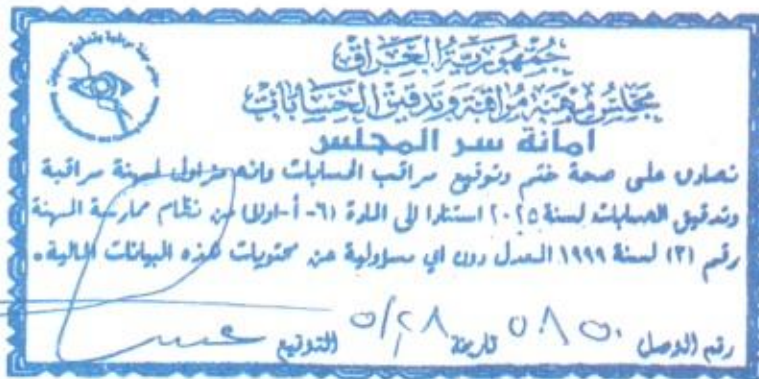 جمهورية العراق
مجلس مهنة مراقبة وتدقيق الحسابات
امانة سر المجلس
نصادق على صحة ختم وتوقيع مراقب الحسابات وانه مزاول لمهنة مراقبة
وتدقيق الحسابات لسنة ٢٠٢٥ استنادا الى المادة (٦- أ-اولا) من نظام ممارسة المهنة
رقم (٣) لسنة ١٩٩٩ المعدل دون اي مسؤولية عن محتويات هذه البيانات المالية.
رقم الوصل ٥٨٥٠ تاريخ ٥/٢٨ التوقيع